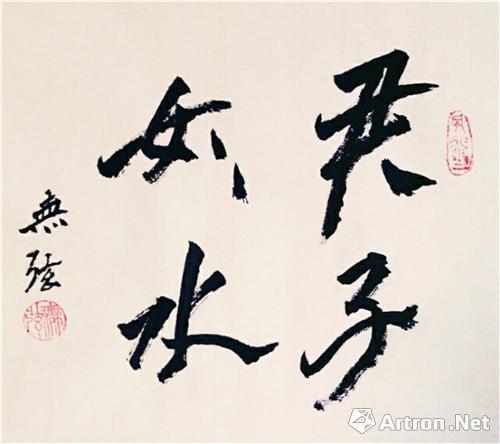 君子
如水
無弦
Artron.Net